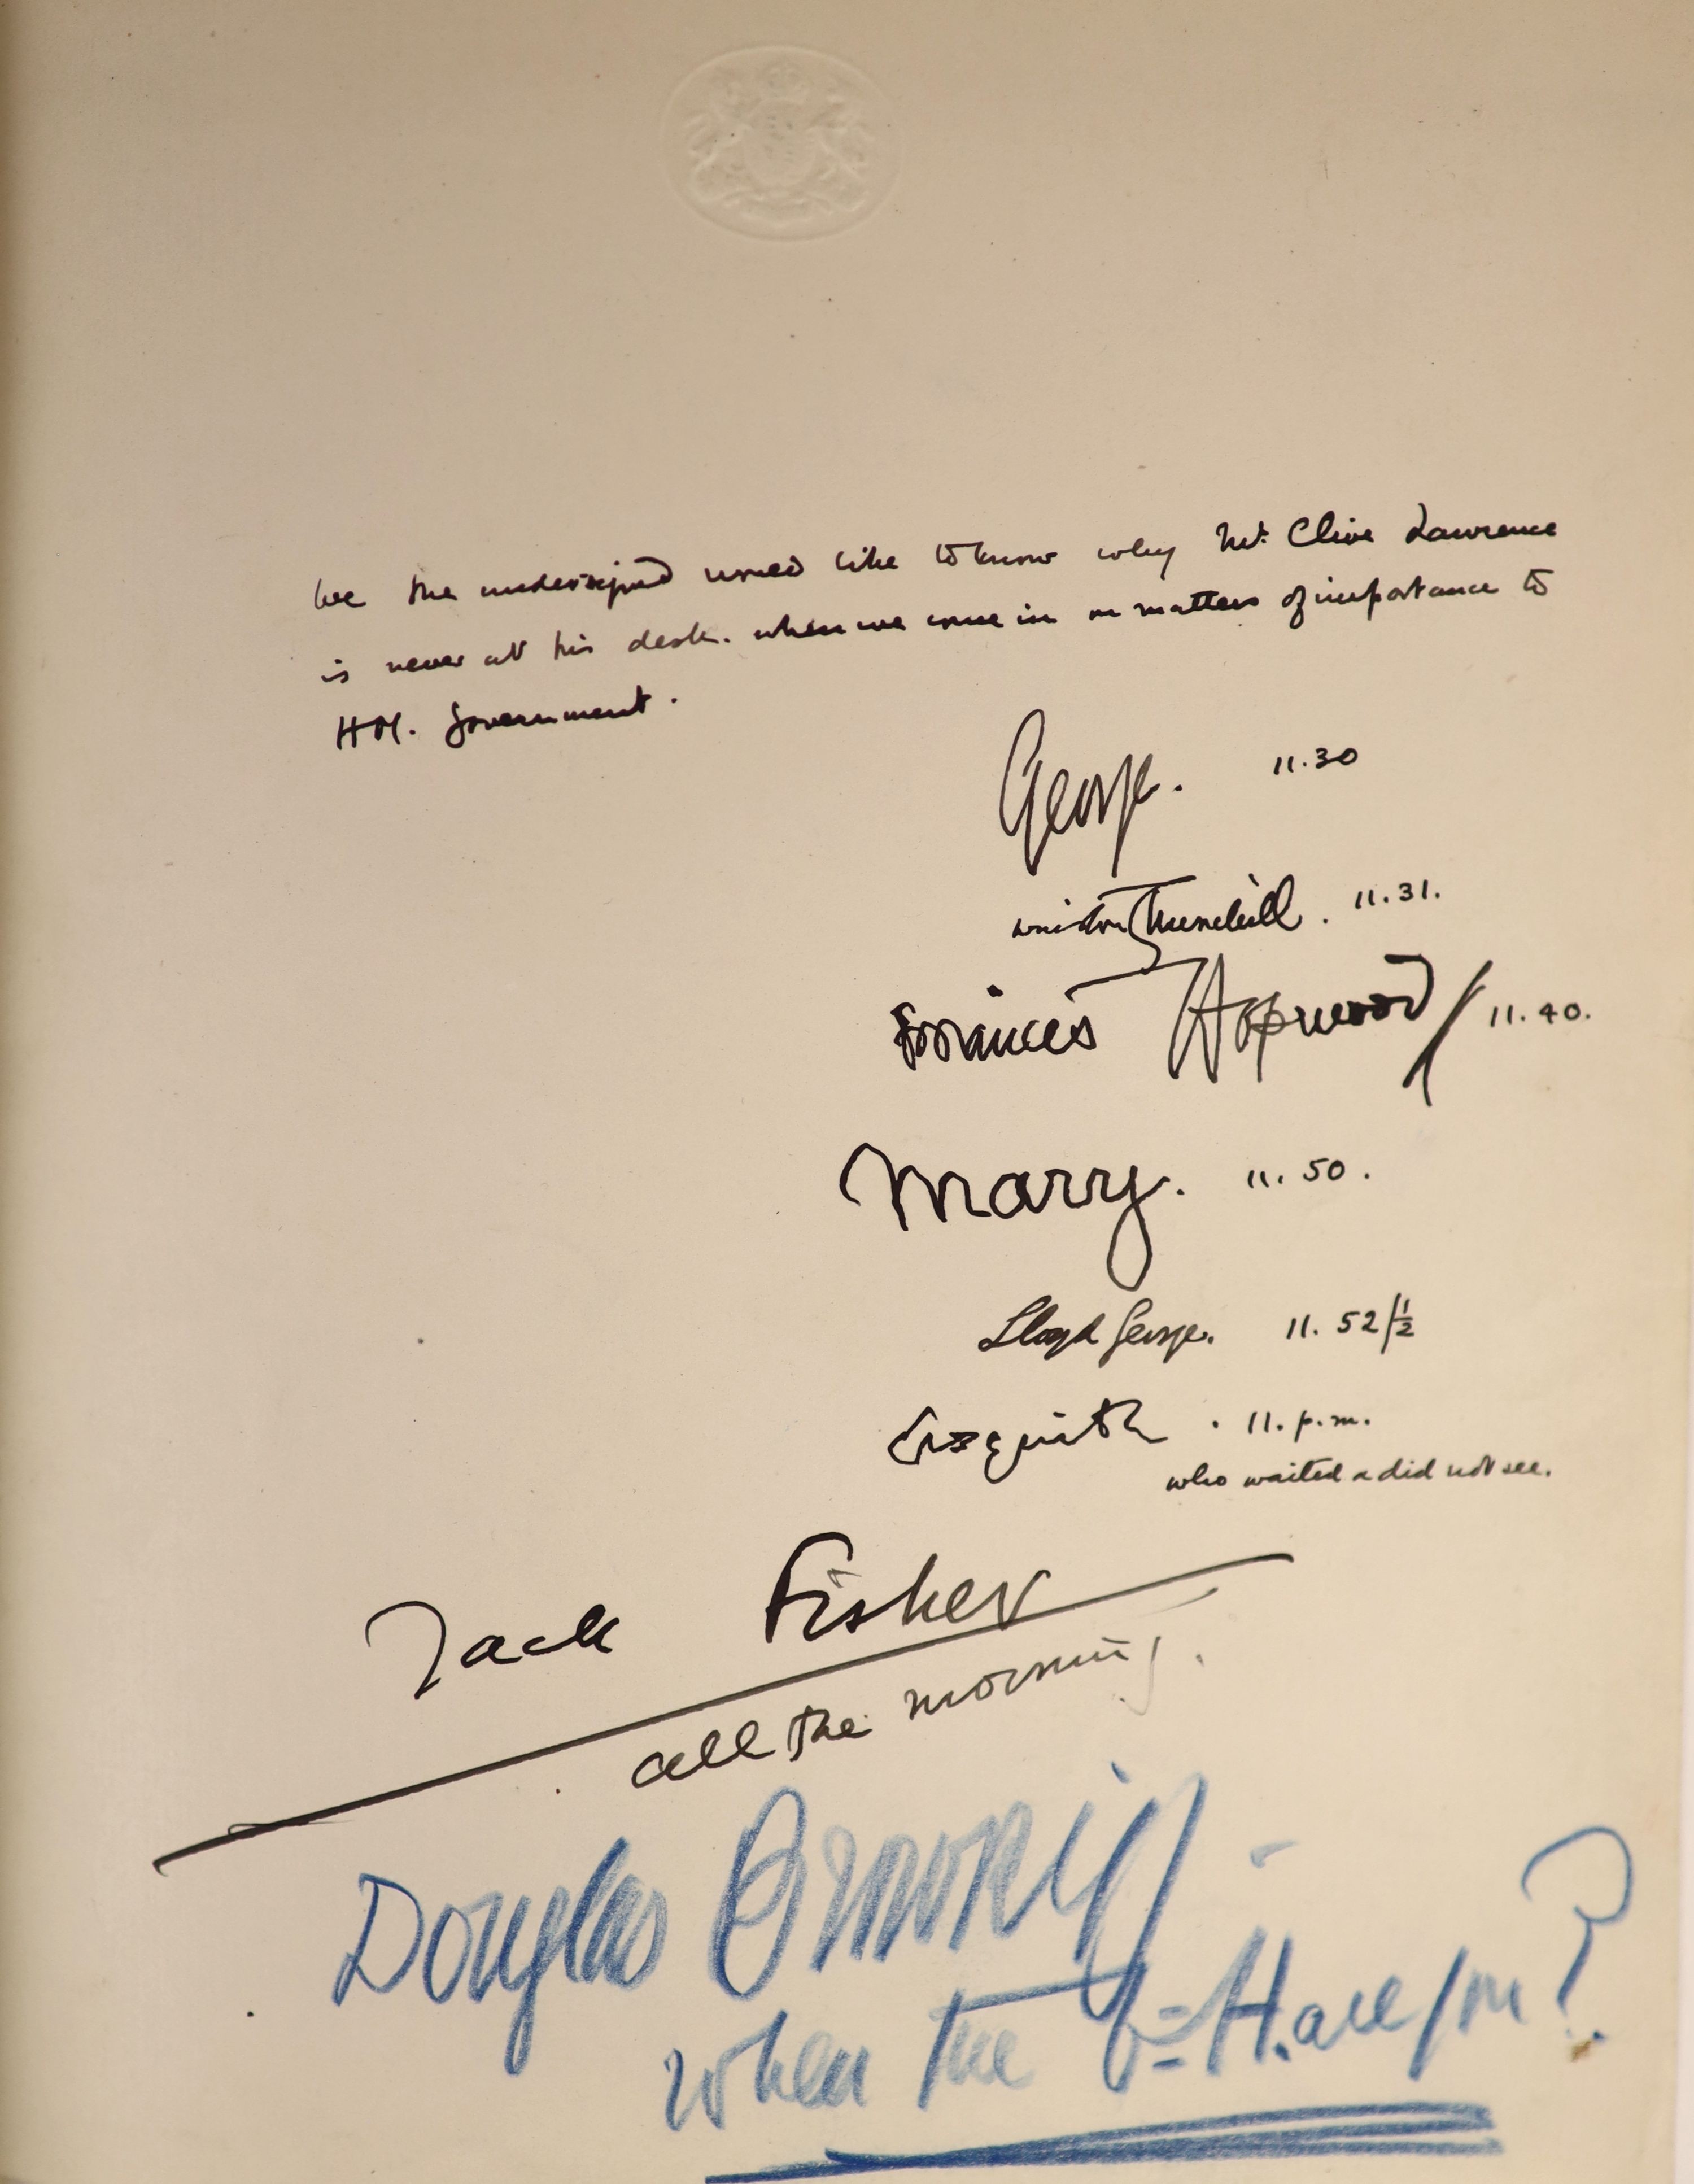 We the undersigned would like to know why Mr. Clive Lawrence
is never at his desk. when we come in on matters of importance to
H.M. Government.
George. 11.30
Winston Churchill. 11.31.
Francis Hopwood / 11.40.
Mary. 11.50.
Lloyd George. 11.52/½
Asquith. 11. p.m.
who waited & did not see.
Jack Fisher
all the morning.
Douglas Brownrigg
When the